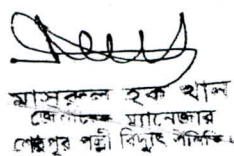 মাসরুরুল হক খান
জেনারেল ম্যানেজার
শেরপুর পল্লী বিদ্যুৎ সমিতি।